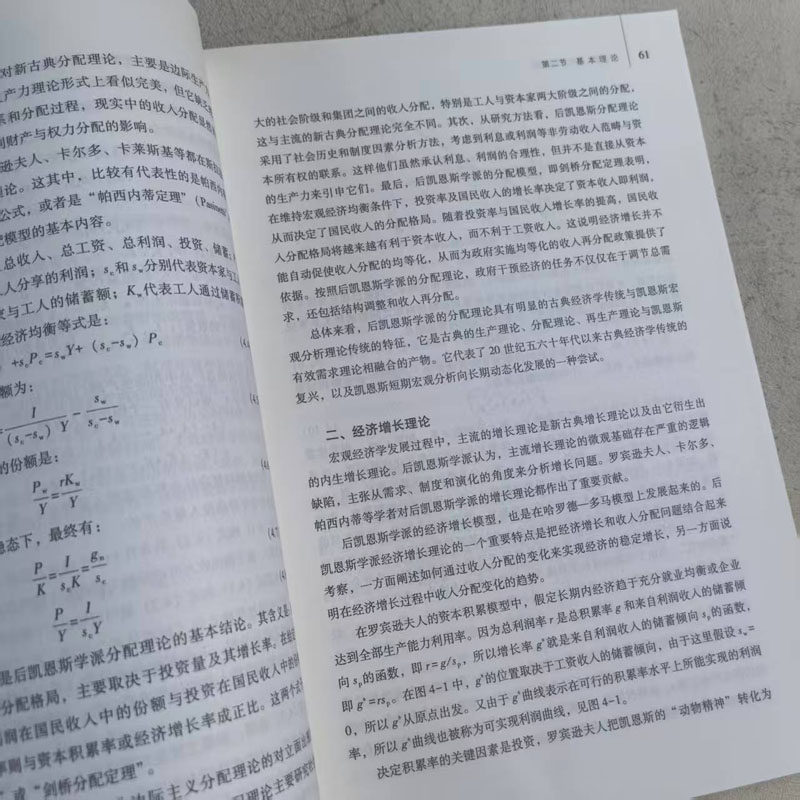 对新古典分配理论，主要是边际生产力
产力理论形式上看似完美，但它缺乏
系和分配过程，现实中的收入分配显然
到财产与权力分配的影响。
逊夫人、卡尔多、卡莱斯基等都在斯
论。这其中，比较有代表性的是帕西内
公式，或者是“帕西内蒂定理”（Pasinetti
模型的基本内容。
总收入、总工资、总利润、投资、储蓄；
人分享的利润；sc和sw分别代表资本家与工
与工人的储蓄额；Kw代表工人通过储蓄
经济均衡等式是：
+scPc=swY+（sc-sw）Pc
额为：
=I/（sc-sw）Y - sw/sc-sw
的份额是：
Pw/Y=rKw/Y
稳态下，最终有：
P/K=I/scK=gn/sc
P/Y=I/sc
是后凯恩斯学派分配理论的基本结论。其含义是
分配格局，主要取决于投资量及其增长率。在给
润在国民收入中的份额与投资在国民收入中的份
率则与资本积累率或经济增长率成正比。这两个
”或“剑桥分配定理”。
边际主义分配理论的对立面出
配理论主要研究
第二节 基本理论 61
大的社会阶级和集团之间的收入分配，特别是工人与资本家两大阶级之间的分配，
这与主流的新古典分配理论完全不同。其次，从研究方法看，后凯恩斯分配理论
采用了社会历史和制度因素分析方法，考虑到利息或利润等非劳动收入范畴与资
本所有权的联系。这样他们虽然承认利息、利润的合理性，但并不是直接从资本
的生产力来引申它们。最后，后凯恩斯学派的分配模型，即剑桥分配定理表明，
在维持宏观经济均衡条件下，投资率及国民收入的增长率决定了资本收入即利润，
从而决定了国民收入的分配格局。随着投资率与国民收入增长率的提高，国民收
入分配格局将越来越有利于资本收入，而不利于工资收入。这说明经济增长并不
能自动促使收入分配的均等化，从而为政府实施均等化的收入再分配政策提供了
依据。按照后凯恩斯学派的分配理论，政府干预经济的任务不仅仅在于调节总需
求，还包括结构调整和收入再分配。
总体来看，后凯恩斯学派的分配理论具有明显的古典经济学传统与凯恩斯宏
观分析理论传统的特征，它是古典的生产理论、分配理论、再生产理论与凯恩斯
有效需求理论相融合的产物。它代表了20世纪五六十年代以来古典经济学传统的
复兴，以及凯恩斯短期宏观分析向长期动态化发展的一种尝试。
二、经济增长理论
宏观经济学发展过程中，主流的增长理论是新古典增长理论以及由它衍生出
的内生增长理论。后凯恩斯学派认为，主流增长理论的微观基础存在严重的逻辑
缺陷，主张从需求、制度和演化的角度来分析增长问题。罗宾逊夫人、卡尔多、
帕西内蒂等学者对后凯恩斯学派的增长理论都作出了重要贡献。
后凯恩斯学派的经济增长模型，也是在哈罗德—多马模型上发展起来的。后
凯恩斯学派经济增长理论的一个重要特点是把经济增长和收入分配问题结合起来
考察，一方面阐述如何通过收入分配的变化来实现经济的稳定增长，另一方面说
明在经济增长过程中收入分配变化的趋势。
在罗宾逊夫人的资本积累模型中，假定长期内经济趋于充分就业均衡或企业
达到全部生产能力利用率。因为总利润率r是总积累率g和来自利润收入的储蓄倾
向sp的函数，即r=g/sp，所以增长率gs就是来自利润收入的储蓄倾向sp的函数，
即gs=sp。在图4-1中，gs的位置取决于工资收入的储蓄倾向，由于这里假设sw=
0，所以gs从原点出发。又由于gs曲线表示在可行的积累率水平上所能实现的利润
率，所以gs曲线也被称为可实现利润曲线，见图4-1。
决定积累率的关键因素是投资，罗宾逊夫人把凯恩斯的“动物精神”转化为